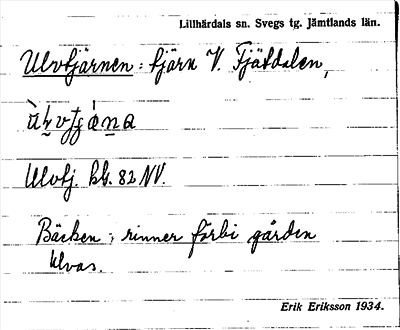 Lillhärdals sn. Svegs tg. Jämtlands län.
Ulvtjärnen: tjärn V. Fjätdalen,
Ulvtj. kb. 82 NV.
Bäcken; rinner förbi gården
Ulvas.
Erik Eriksson 1934.